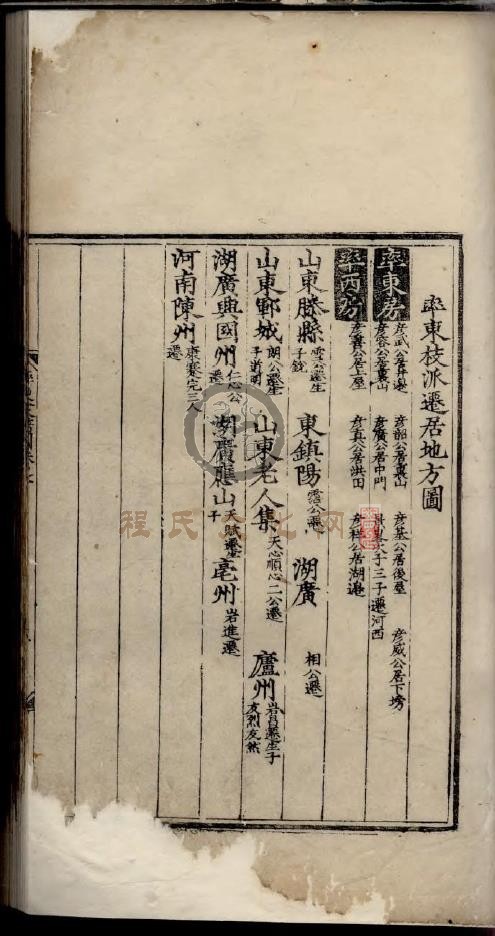 率東枝派遷居地方圖
率東房 彥武公居井邊 彥韶公居裏山 彥基公居後塈 彥威公居下塝
彥容公居裏山 彥廣公居中門 子三子遷河西
率西房 彥真公居洪田 彥祥公居湖邊
山東滕縣 雪公遷生子銳 東鎮陽 霑公遷 湖廣 相公遷
山東鄆城 朗公遷生子道明 山東老人集 天心順心二公遷 廬州 岩昌遷生子友烈友然
湖廣興國州 仁心公遷 湖廣應山 天賦遷生子 亳州 岩進遷
河南陳州 康寨完三人遷
程氏文化网